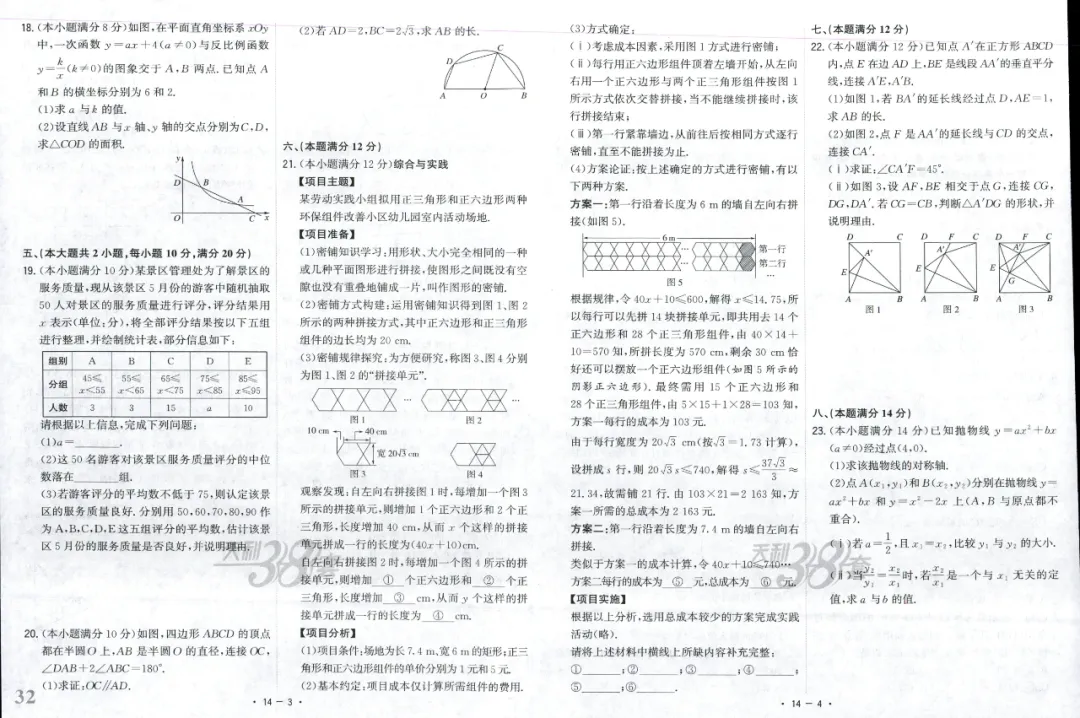 18.(本小题满分8分)如图,在平面直角坐标系xOy
中,一次函数 y=ax+4(a≠0)与反比例函数
y=k/x(k≠0)的图象交于 A,B 两点.已知点 A
和 B 的横坐标分别为 6 和 2.
(1)求 a 与 k 的值.
(2)设直线 AB 与 x 轴、y 轴的交点分别为 C,D,
求△COD 的面积.
y
D
B
A
O
C
x
五、(本大题共 2 小题,每小题 10 分,满分 20 分)
19.(本小题满分 10 分)某景区管理处为了解景区的
服务质量,现从该景区 5 月份的游客中随机抽取
50 人对景区的服务质量进行评分,评分结果用
x 表示(单位:分),将全部评分结果按以下五组
进行整理,并绘制统计表,部分信息如下:
组别 A B C D E
分组 45≤x<55 55≤x<65 65≤x<75 75≤x<85 85≤x≤95
人数 3 3 15 a 10
请根据以上信息,完成下列问题:
(1)a=______.
(2)这 50 名游客对该景区服务质量评分的中位
数落在______组.
(3)若游客评分的平均数不低于 75,则认定该景
区的服务质量良好.分别用 50,60,70,80,90 作
为 A,B,C,D,E 这五组评分的平均数,估计该景
区 5 月份的服务质量是否良好,并说明理由.
20.(本小题满分 10 分)如图,四边形 ABCD 的顶点
都在半圆 O 上,AB 是半圆 O 的直径,连接 OC,
∠DAB+2∠ABC=180°.
(1)求证:OC∥AD.
32
(2)若 AD=2,BC=2√3,求 AB 的长.
C
D
A
O
B
六、(本题满分 12 分)
21.(本小题满分 12 分)综合与实践
【项目主题】
某劳动实践小组拟用正三角形和正六边形两种
环保组件改善小区幼儿园室内活动场地.
【项目准备】
(1)密铺知识学习:用形状、大小完全相同的一种
或几种平面图形进行拼接,使图形之间既没有空
隙也没有重叠地铺成一片,叫作图形的密铺.
(2)密铺方式构建:运用密铺知识得到图 1、图 2
所示的两种拼接方式,其中正六边形和正三角形
组件的边长均为 20 cm.
(3)密铺规律探究:为方便研究,称图 3、图 4 分别
为图 1、图 2 的“拼接单元”.
…
…
图 1
图 2
10 cm
40 cm
宽 20√3 cm
图 3
图 4
观察发现:自左向右拼接图 1 时,每增加一个图 3
所示的拼接单元,则增加 1 个正六边形和 2 个正
三角形,长度增加 40 cm,从而 x 个这样的拼接
单元拼成一行的长度为(40x+10)cm.
自左向右拼接图 2 时,每增加一个图 4 所示的拼
接单元,则增加 ① 个正六边形和 ② 个正
三角形,长度增加 ③ cm,从而 y 个这样的拼
接单元拼成一行的长度为 ④ cm.
【项目分析】
(1)项目条件:场地为长 7.4 m、宽 6 m 的矩形;正三
角形和正六边形组件的单价分别为 1 元和 5 元.
(2)基本约定:项目成本仅计算所需组件的费用.
· 14 - 3 ·
(3)方式确定:
(ⅰ)考虑成本因素,采用图 1 方式进行密铺;
(ⅱ)每行用正六边形组件顶着左墙开始,从左向
右用一个正六边形与两个正三角形组件按图 1
所示方式依次交替拼接,当不能继续拼接时,该
行拼接结束;
(ⅲ)第一行紧靠墙边,从前往后按相同方式逐行
密铺,直至不能拼接为止.
(4)方案论证:按上述确定的方式进行密铺,有以
下两种方案.
方案一:第一行沿着长度为 6 m 的墙自左向右拼
接(如图 5).
6 m
…
第一行
…
第二行
…
图 5
根据规律,令 40x+10≤600,解得 x≤14.75,所
以每行可以先拼 14 块拼接单元,即共用去 14 个
正六边形和 28 个正三角形组件,由 40×14+
10=570 知,所拼长度为 570 cm,剩余 30 cm 恰
好还可以摆放一个正六边形组件(如图 5 所示的
阴影正六边形).最终需用 15 个正六边形和
28 个正三角形组件,由 5×15+1×28=103 知,
方案一每行的成本为 103 元.
由于每行宽度为 20√3 cm(按√3=1.73 计算),
设拼成 s 行,则 20√3 s≤740,解得 s≤37√3/3≈
21.34,故需铺 21 行.由 103×21=2 163 知,方
案一所需的总成本为 2 163 元.
方案二:第一行沿着长度为 7.4 m 的墙自左向右
拼接.
类似于方案一的成本计算,令 40x+10≤740…
方案二每行的成本为 ⑤ 元,总成本为 ⑥ 元.
【项目实施】
根据以上分析,选用总成本较少的方案完成实践
活动(略).
请将上述材料中横线上所缺内容补充完整:
①______;②______;③______;④______;
⑤______;⑥______.
七、(本题满分 12 分)
22.(本小题满分 12 分)已知点 A′在正方形 ABCD
内,点 E 在边 AD 上,BE 是线段 AA′的垂直平分
线,连接 A′E,A′B.
(1)如图 1,若 BA′的延长线经过点 D,AE=1,
求 AB 的长.
(2)如图 2,点 F 是 AA′的延长线与 CD 的交点,
连接 CA′.
(ⅰ)求证:∠CA′F=45°.
(ⅱ)如图 3,设 AF,BE 相交于点 G,连接 CG,
DG,DA′.若 CG=CB,判断△A′DG 的形状,并
说明理由.
D C D F C D F C
A′ A′ A′
E E E
G
A B A B A B
图 1 图 2 图 3
八、(本题满分 14 分)
23.(本小题满分 14 分)已知抛物线 y=ax²+bx
(a≠0)经过点(4,0).
(1)求该抛物线的对称轴.
(2)点 A(x₁,y₁)和 B(x₂,y₂)分别在抛物线 y=
ax²+bx 和 y=x²−2x 上(A,B 与原点都不
重合).
(ⅰ)若 a=1/2,且 x₁=x₂,比较 y₁ 与 y₂ 的大小.
(ⅱ)当 y₂/y₁=x₂/x₁ 时,若 x₂/x₁ 是一个与 x₁ 无关的定
值,求 a 与 b 的值.
· 14 - 4 ·
天利38套
天利38套